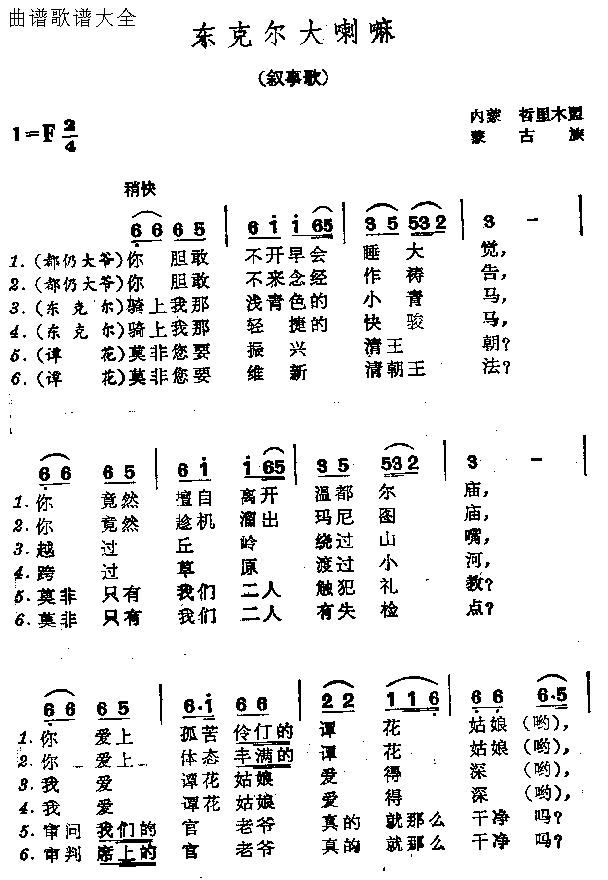 曲谱歌谱大全
东克尔大喇嘛
(叙事歌)
1=F 2/4
内蒙 哲里木盟
蒙古族
稍快
6 6 6 5 | 6 i i (65) | 3 5 532 | 3 - |
1.(都仍大爷)你 胆敢 不开早会 睡大 觉,
2.(都仍大爷)你 胆敢 不来念经 作祷 告,
3.(东克尔)骑上我那 浅青色的 小青 马,
4.(东克尔)骑上我那 轻捷的 快骏 马,
5.(谭花)莫非您要 振兴 清王 朝?
6.(谭花)莫非您要 维新 清朝王 法?
6 6 6 5 | 6 i i 65 | 3 5 532 | 3 - |
1.你 竟然 擅自 离开 温都尔 庙,
2.你 竟然 趁机 溜出 玛尼图 庙,
3.越过 丘岭 绕过山 嘴,
4.跨过 草原 渡过小 河,
5.莫非 只有 我们 二人 触犯礼 教?
6.莫非 只有 我们 二人 有失检 点?
6 6 6 5 | 6·i 6 6 | 2 2 1 1 6 | 6 6 6·5 |
1.你 爱上 孤苦 伶仃的 谭花 姑娘(哟),
2.你 爱上 体态 丰满的 谭花 姑娘(哟),
3.我 爱 谭花 姑娘 爱得 深(哟),
4.我 爱 谭花 姑娘 爱得 深(哟),
5.审问 我们的 官老爷 真的 就那么 干净吗?
6.审判 席上的 官老爷 真的 就那么 干净吗?